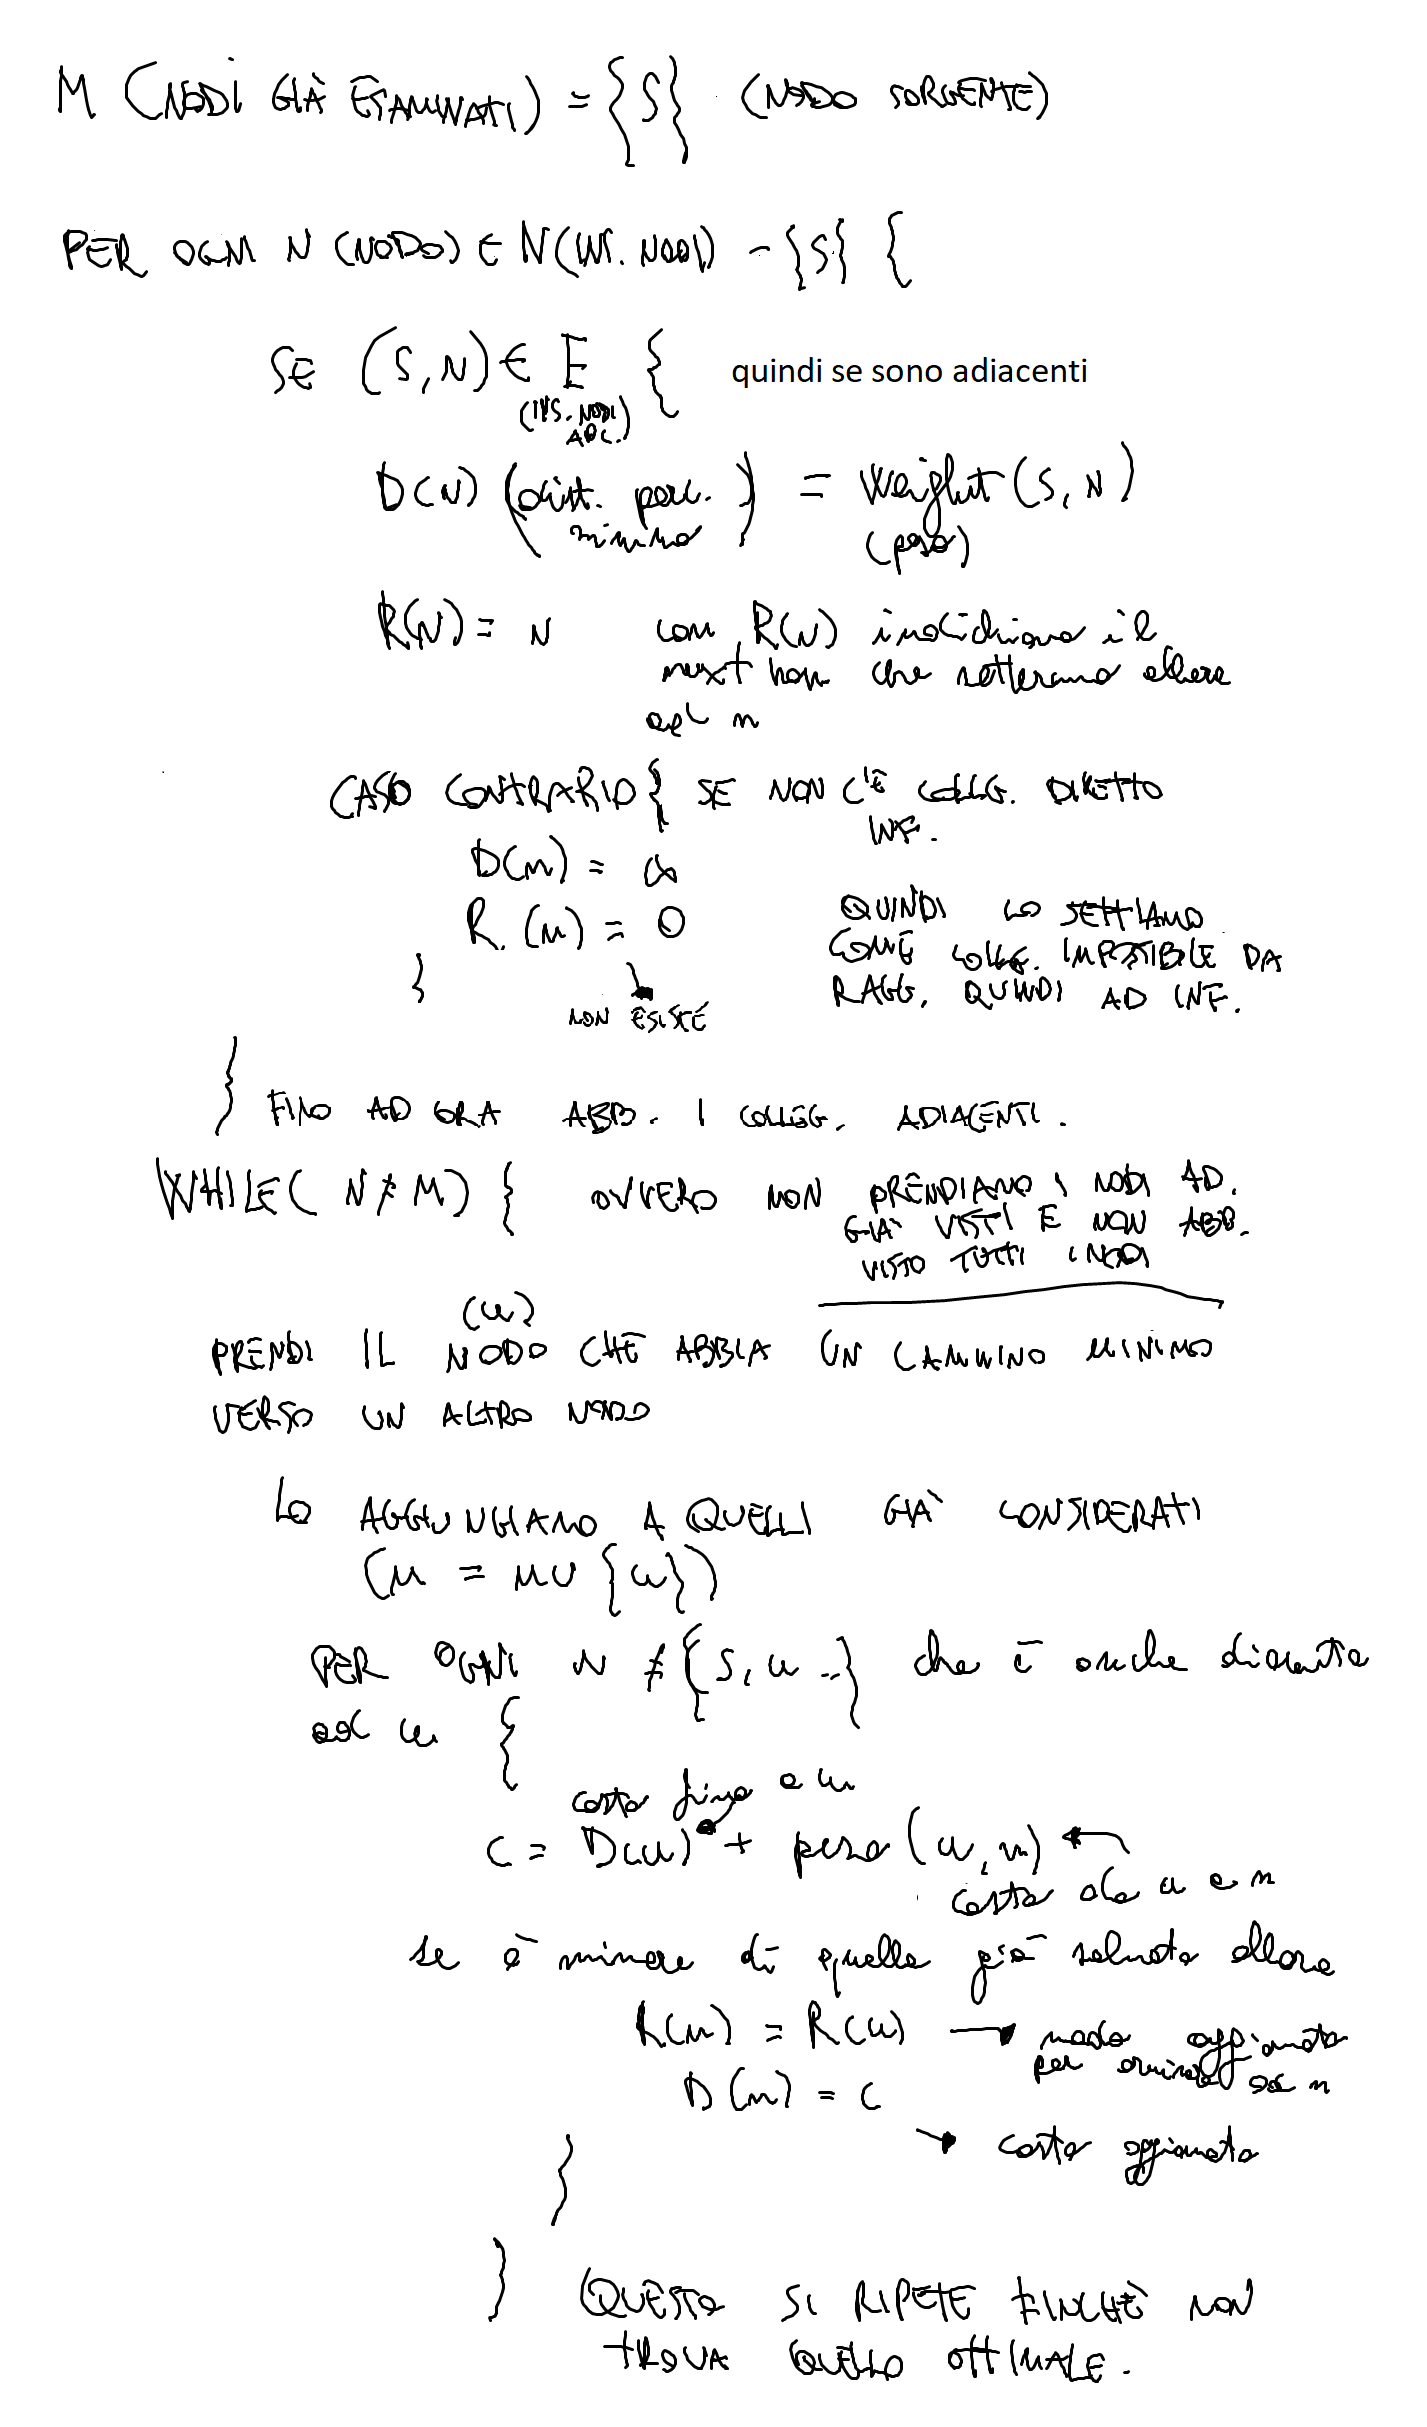 M (NODI GIÀ ESAMINATI) = {S} (NODO SORGENTE)
PER OGNI N (NODO) ∈ N (INS. NODI) - {S} {
SE (S, N) ∈ E { quindi se sono adiacenti
(INS. NODI
ADC.)
D(N) (dist. perc. minimo) = Weight (S, N)
(peso)
R(N) = N con R(N) indichiamo il
next hop che setteremo essere
ad n
CASO CONTRARIO { SE NON C'È COLLEG. DIRETTO
INF.
D(n) = ∞
R.(n) = 0 QUINDI LO SETTIAMO
COME COLLEG. IMPOSSIBLE DA
} RAGG, QUINDI AD INF.
NON ESISTE
} FINO AD ORA ABB. I COLLEG. ADIACENTI.
WHILE( N ≠ M) { OVVERO NON PRENDIAMO I NODI AD.
GIÀ VISTI E NON ABB.
VISTO TUTTI I NODI
(u)
PRENDI IL NODO CHE ABBIA UN CAMMINO MINIMO
VERSO UN ALTRO NODO
LO AGGIUNGIAMO A QUELLI GIÀ CONSIDERATI
(M = M U {u})
PER OGNI N ≠ {S, u ..} che è anche
ad u {
costo fino a u
C = D(u) + peso (u, n)
costo da u a n
se è minore di quello già salvato allora
R(n) = R(u) → nodo aggiornato
per arrivare ad n
D(n) = C
→ costo aggiornato
}
} QUESTO SI RIPETE FINCHÈ NON
TROVA QUELLO OTTIMALE.